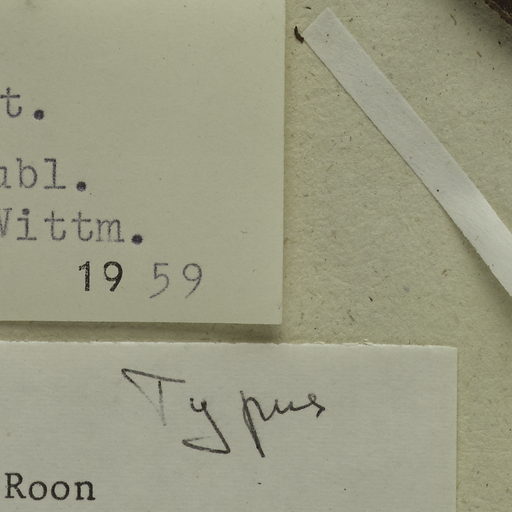 t.
ubl.
Wittm.
19 59
Typus
Roon